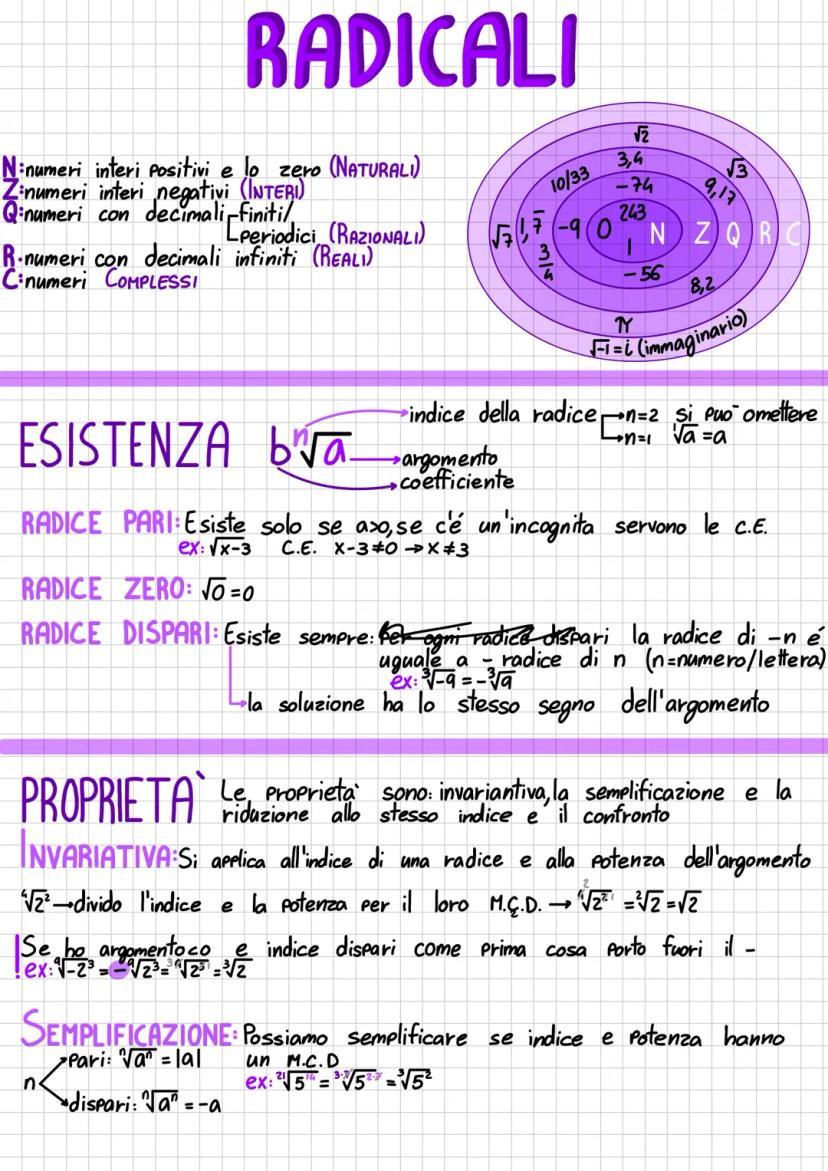 RADICALI
N:numeri interi positivi e lo zero (NATURALI)
Z:numeri interi negativi (INTERI)
Q:numeri con decimali finiti/
periodici (RAZIONALI)
R.numeri con decimali infiniti (REALI)
C:numeri COMPLESSI
√2
3,4
√3
10/33
-74
9,17
243
√7 1,7̅ -9 0 N Z Q R C
1
3/4
-56
8,2
π
√-1=i (immaginario)
ESISTENZA b ⁿ√a
indice della radice →n=2 si può omettere
→n=1 ¹√a=a
argomento
coefficiente
RADICE PARI: Esiste solo se a>0, se c'é un'incognita servono le C.E.
ex: √x-3 C.E. x-3≠0 → x≠3
RADICE ZERO: √0=0
RADICE DISPARI: Esiste sempre: Per ogni radice dispari la radice di -n é
uguale a - radice di n (n=numero/lettera)
ex: ³√-9 = -³√9
la soluzione ha lo stesso segno dell'argomento
PROPRIETA` Le proprieta` sono: invariantiva, la semplificazione e la
riduzione allo stesso indice e il confronto
INVARIATIVA: Si applica all'indice di una radice e alla potenza dell'argomento
⁴√2² →divido l'indice e la potenza per il loro M.Ç.D. → ⁴√2² = ²√2 = √2
! Se ho argomento<0 e indice dispari come prima cosa porto fuori il -
ex: ⁹√-2³ = -⁹√2³ = ⁹√2³ = ³√2
SEMPLIFICAZIONE: Possiamo semplificare se indice e potenza hanno
un M.C.D
n
pari: ⁿ√aⁿ = |a|
dispari: ⁿ√aⁿ = -a
ex: ²¹√5¹⁴ = ³·⁷√5²·⁷ = ³√5²